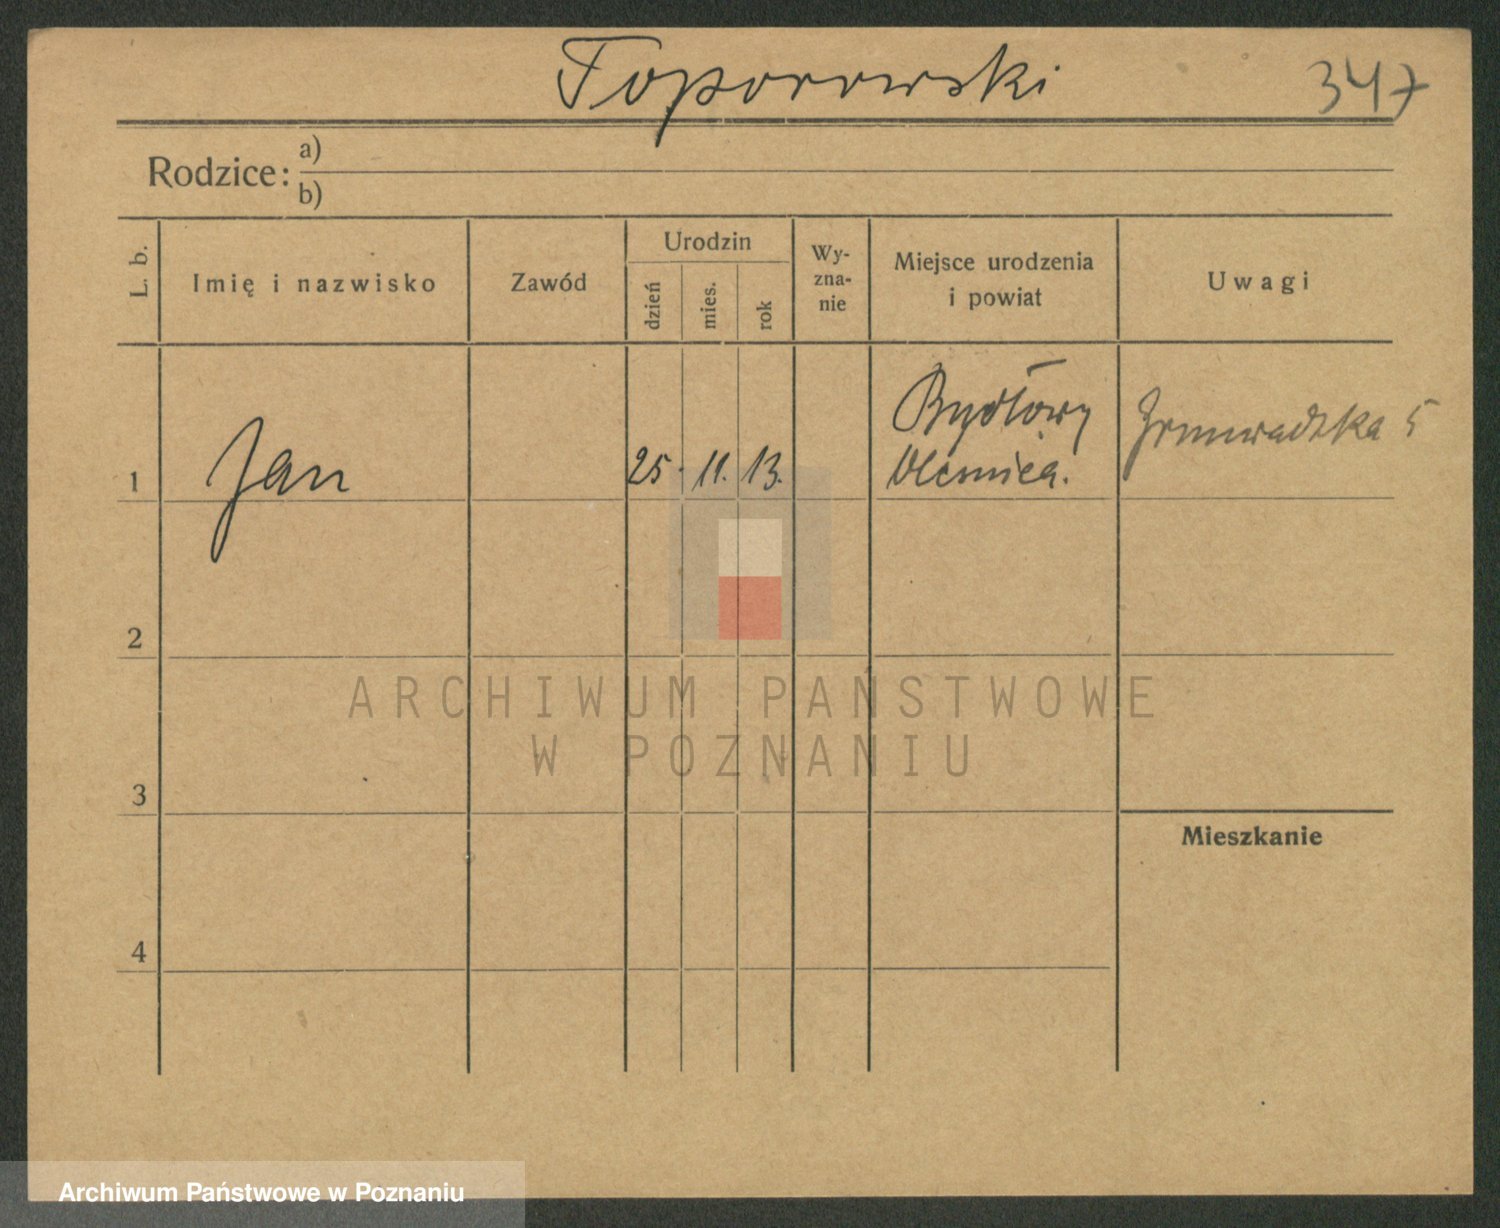 Toporowski 347
Rodzice: a)
b)
L. b.
Imię i nazwisko
Zawód
Urodzin
dzień
mies.
rok
Wy-
zna-
nie
Miejsce urodzenia
i powiat
Uwagi
1 Jan 25. 11. 13.
Bydłowy
Oleśnica.
2
3
4
Mieszkanie
ARCHIWUM PAŃSTWOWE
W POZNANIU
Archiwum Państwowe w Poznaniu